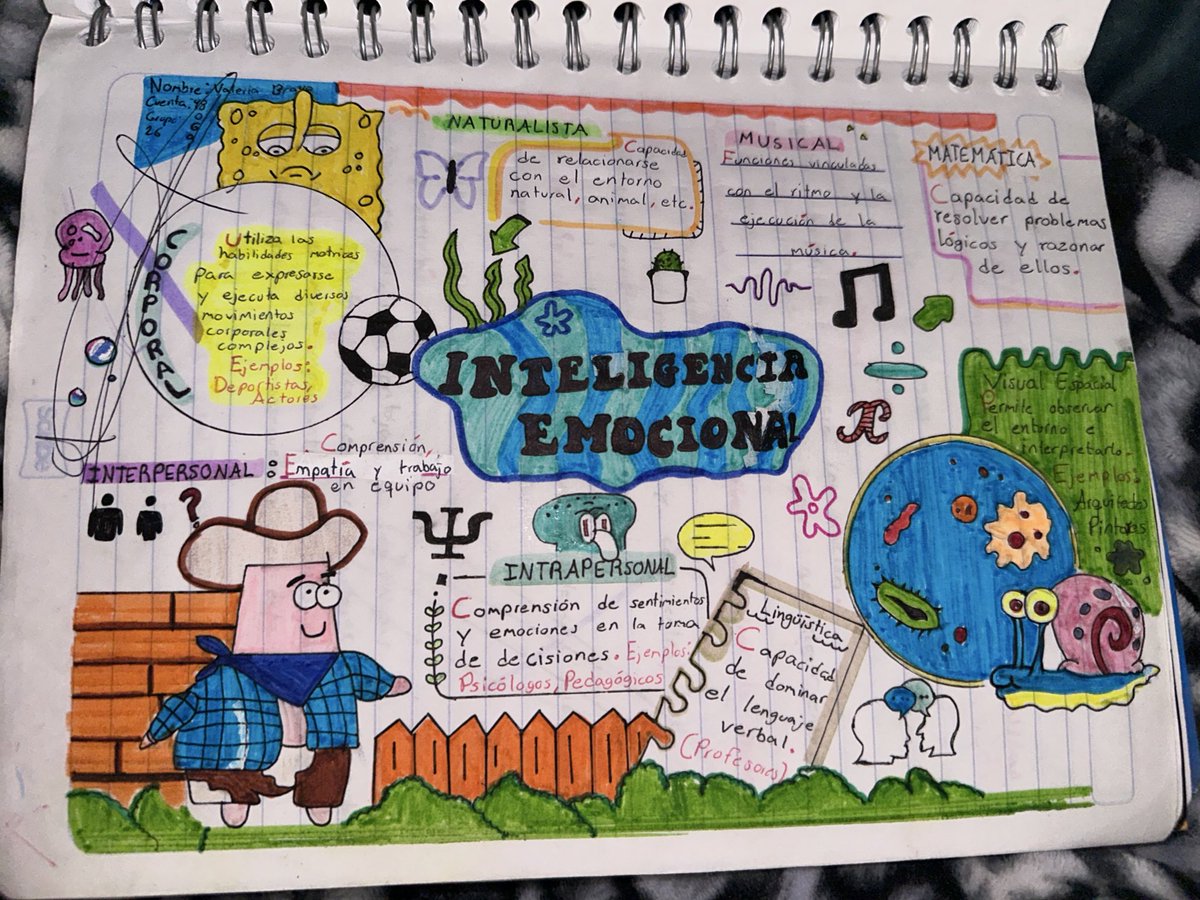 Nombre: Valeria Bravo
Cuenta: 98
Grupo:
26
NATURALISTA
Capacidad
de relacionarse
con el entorno
natural, animal, etc.
MUSICAL
Funciones vinculadas
con el ritmo y la
ejecución de la
música.
MATEMÁTICA
Capacidad de
resolver problemas
lógicos y razonar
de ellos.
CORPORAL
Utiliza las
habilidades motrices
para expresarse
y ejecuta diversos
movimientos
corporales
complejos.
Ejemplos:
Deportistas,
Actores
INTELIGENCIA
EMOCIONAL
Visual Espacial
Permite observar
el entorno e
interpretarlo.
Ejemplos:
Arquitectos
Pintores
INTERPERSONAL :
Comprensión,
Empatía y trabajo
en equipo
?
Ψ
INTRAPERSONAL
Comprensión de sentimientos
y emociones en la toma
de decisiones. Ejemplos:
Psicólogos, Pedagógicos
Lingüística
Capacidad
de dominar
el lenguaje
verbal.
(Profesores)